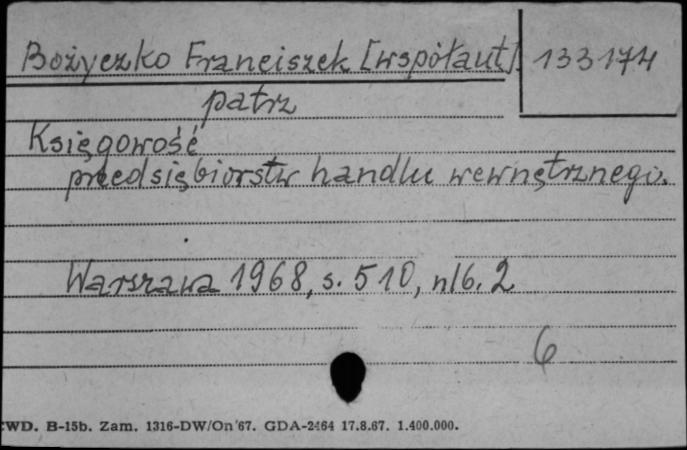 Bożyczko Franciszek [współaut]. 133174
patrz
Księgowość
przedsiębiorstw handlu wewnętrznego.
Warszawa 1968, s. 510, nlb. 2
6
CWD. B-15b. Zam. 1316-DW/On'67. GDA-2464 17.8.67. 1.400.000.